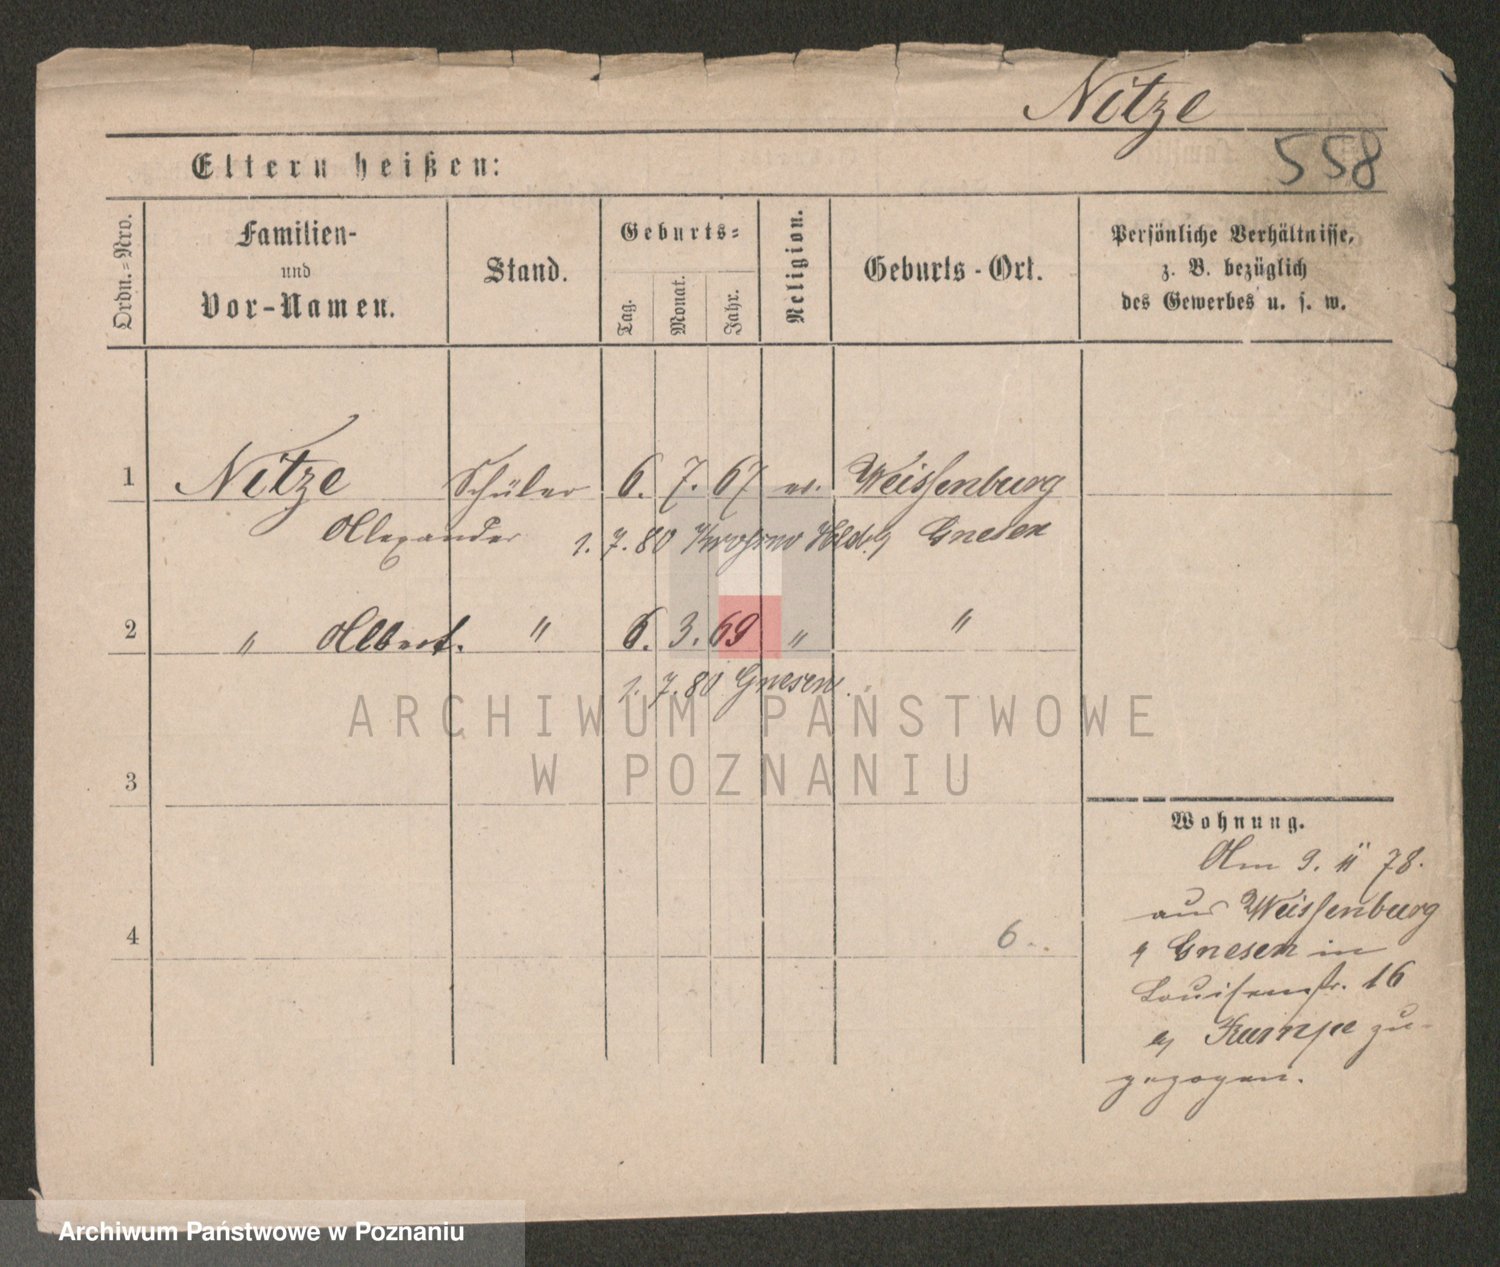 Nitze
558
Eltern heißen:
Ordn.-Nro.
Familien-
und
Vor-Namen.
Stand.
Geburts-
Tag.
Monat.
Jahr.
Religion.
Geburts-Ort.
Persönliche Verhältnisse,
z. B. bezüglich
des Gewerbes u. s. w.
1 Nitze Schüler 6. 7. 67 ev. Weissenburg
Alexander 1. 7. 80 Gnesen
2 " Albert. " 6. 3. 69 " "
1. 7. 80 Gnesen.
ARCHIWUM PAŃSTWOWE
W POZNANIU
3
4
6.
Wohnung.
Am 9. 11 78.
aus Weissenburg
Gnesen in
Louisenstr. 16
zu-
gezogen.
Archiwum Państwowe w Poznaniu